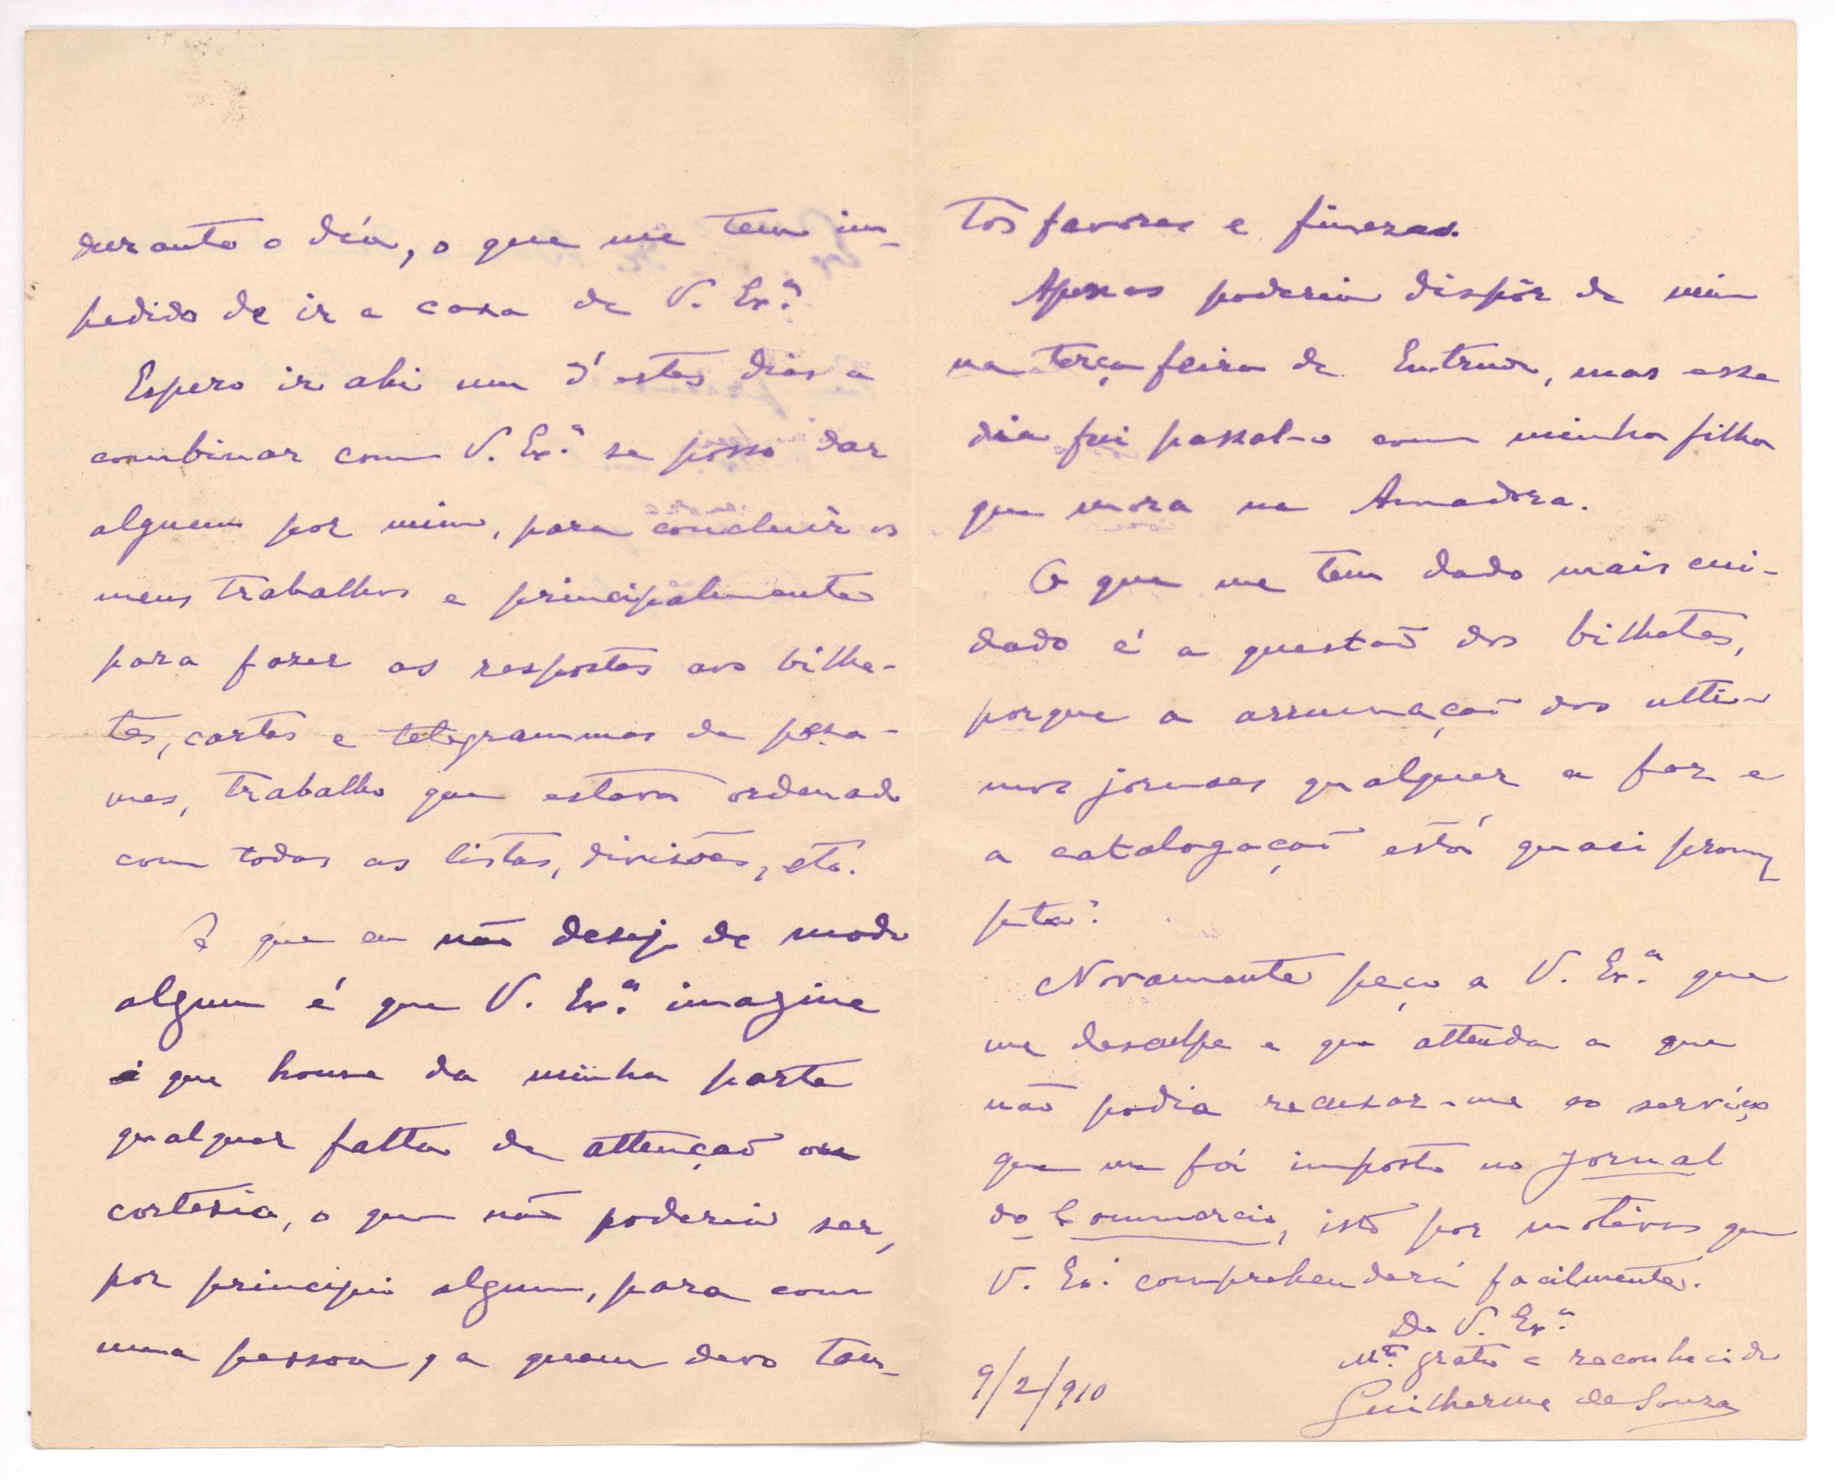 durante o dia, o que me tem im-
pedido de ir a casa de V. Ex.ª
Espero ir ahi um d'estes dias a
combinar com V. Ex.ª se posso dar
alguem por mim, para concluir os
meus trabalhos e principalmente
para fazer as respostas aos bilhe-
tes, cartas e telegrammas de peza-
mes, trabalho que estava ordenado
com todas as listas, divisões, etc.
O que eu não desejo de modo
algum é que V. Ex.ª imagine
que houve da minha parte
qualquer falta de attenção ou
cortesia, o que não poderia ser,
por principio algum, para com
uma pessoa, a quem devo tan-
tos favores e finezas.
Apenas poderia dispôr de mim
na terça feira de Entrudo, mas esse
dia fui passal-o com minha filha
que mora na Amadora.
O que me tem dado mais cui-
dado é a questão dos bilhetes,
porque a arrumação dos ulti-
mos jornaes qualquer a faz e
a catalogação está quasi prom-
pta.
Novamente peço a V. Ex.ª que
me desculpe e que attenda a que
não podia recusar-me ao serviço
que me foi imposto no Jornal
do Commercio, isto por motivos que
V. Ex.ª comprehenderá facilmente.
De V. Ex.ª
M.to grato e reconhecido
9/2/910
Guilherme de Souza